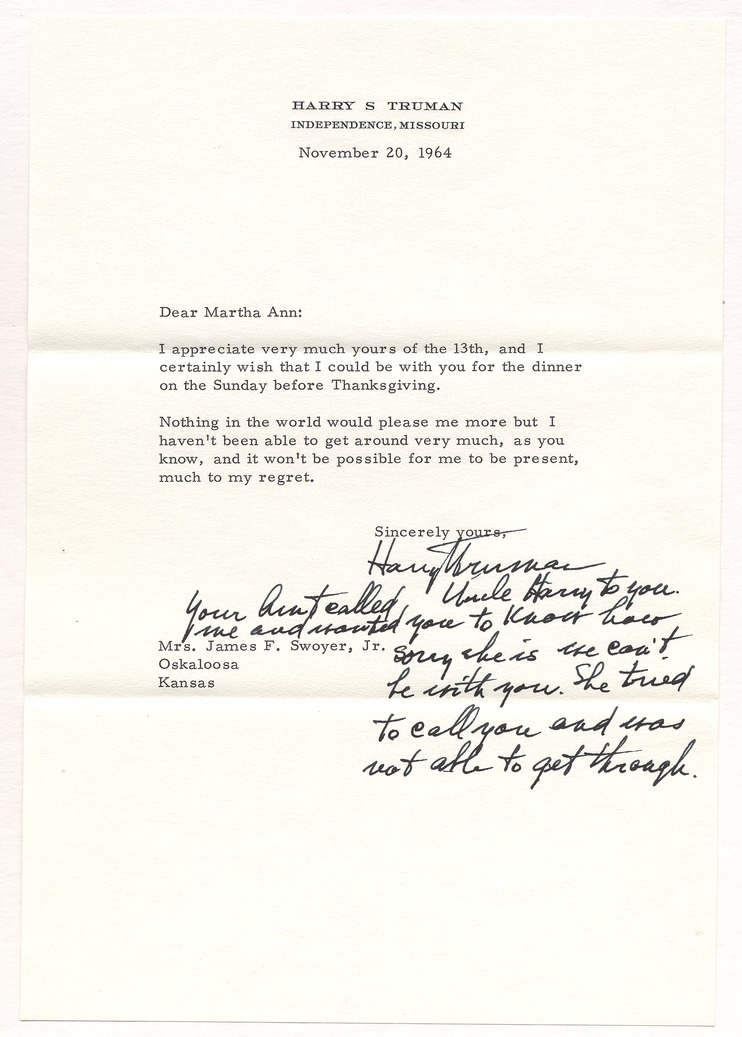 HARRY S TRUMAN
INDEPENDENCE, MISSOURI
November 20, 1964
Dear Martha Ann:
I appreciate very much yours of the 13th, and I
certainly wish that I could be with you for the dinner
on the Sunday before Thanksgiving.
Nothing in the world would please me more but I
haven't been able to get around very much, as you
know, and it won't be possible for me to be present,
much to my regret.
Sincerely yours,
Harry Truman
Uncle Harry to you.
Your Aunt called
me and wanted you to know how
sorry she is we can't
be with you. She tried
to call you and was
not able to get through.
Mrs. James F. Swoyer, Jr.
Oskaloosa
Kansas